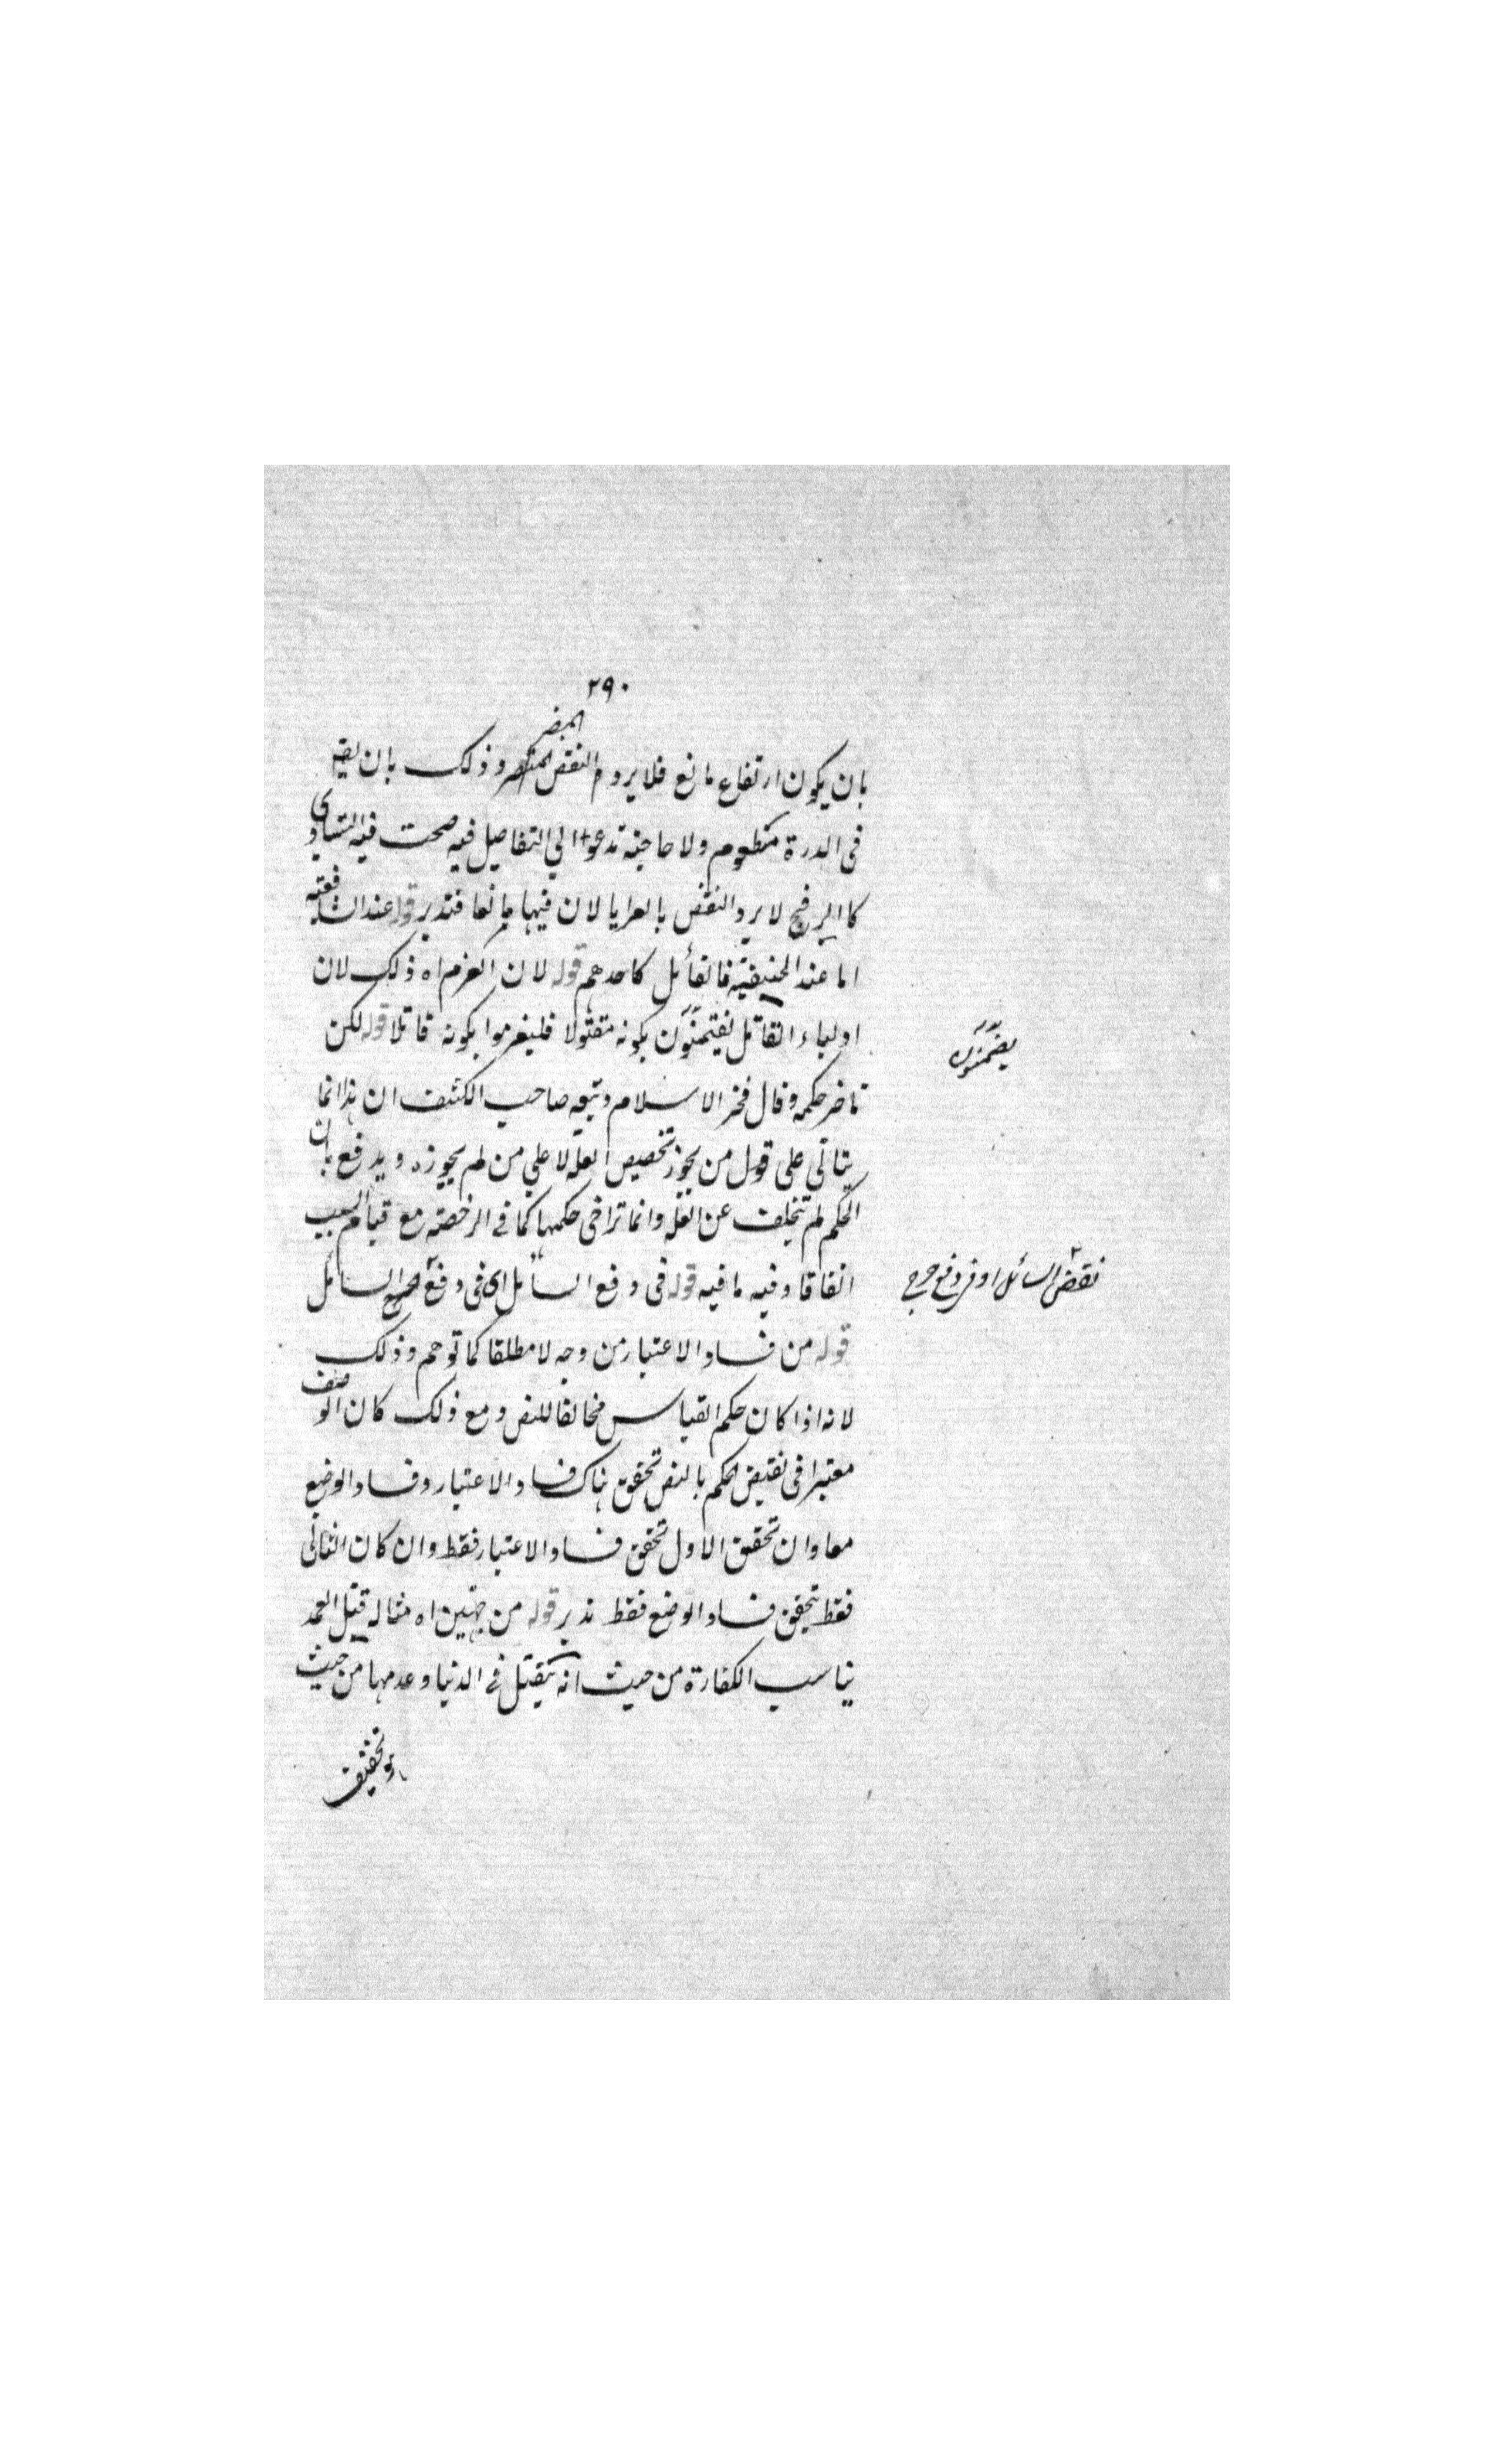 ٢٩٠
المضر
بان يكون ارتفاع مانع فلا يروم النقض وذلك بان يقيد
فى الدرة مطعوم ولا حاجة تدعوا الي التفاصيل فيه صحت فيه التساوى
كالبر فح لا يرد النقض بالعرايا لان فيها مانعا فتدبر قوله عند الشافعية
اما عند الحنيفية فالقاتل كاحدهم قوله لان الغرم اه ذلك لان
اولياء القاتل يغتمنون بكونه مقتولا فليغرموا بكونه قاتلا قوله لكن
تاخر حكمه وقال فخر الاسلام وتبعه صاحب الكشف ان هذا انما
يتاتى على قول من يجوز تخصيص العلة لا علي من لم يجوزه ويدفع بان
الحكم لم تتخلف عن العلة وانما تراخى حكمها كما فى الرخصة مع قيام السبب
اتفاقا وفيه ما فيه قوله فى دفع السائل اى فى دفع السائل
قوله من فساد الاعتبار من وجه لا مطلقا كما توهم وذلك
لانه اذا كان حكم القياس مخالفا للنص ومع ذلك كان الوصف
معتبرا فى نقيض الحكم بالنص تحقق هناك فساد الاعتبار وفساد الوضع
معا وان تحقق الاول تحقق فساد الاعتبار فقط وان كان الثانى
فقط يتحقق فساد الوضع فقط تدبر قوله من جهتين اه مثاله قتيل العمد
يناسب الكفارة من حيث انه يقتل فى الدنيا وعدمها من حيث
يضمنون
نقض السائل
تخفيف